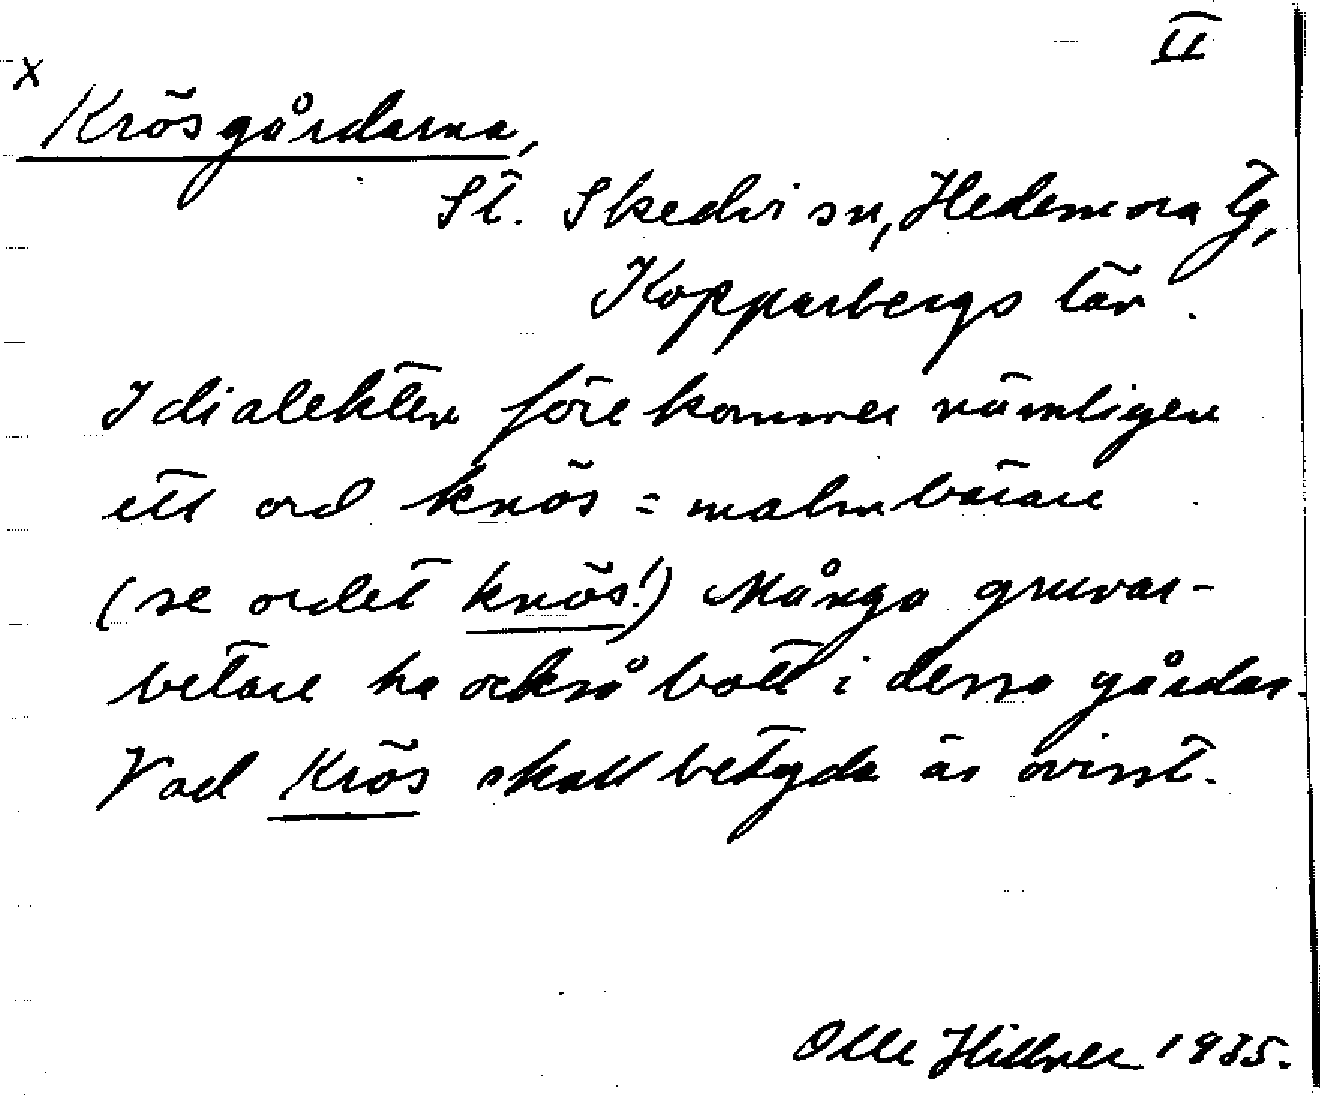 II
x
Krösgårdarna,
St. Skedvi sn, Hedemora tg,
Kopparbergs län.
I dialekten förekommer nämligen
ett ord knös = malmbärare
(se ordet knös!) Många gruvar-
betare ha också bott i dessa gårdar.
Vad Krös skall betyda är ovisst.
Olle Hillner 1935.